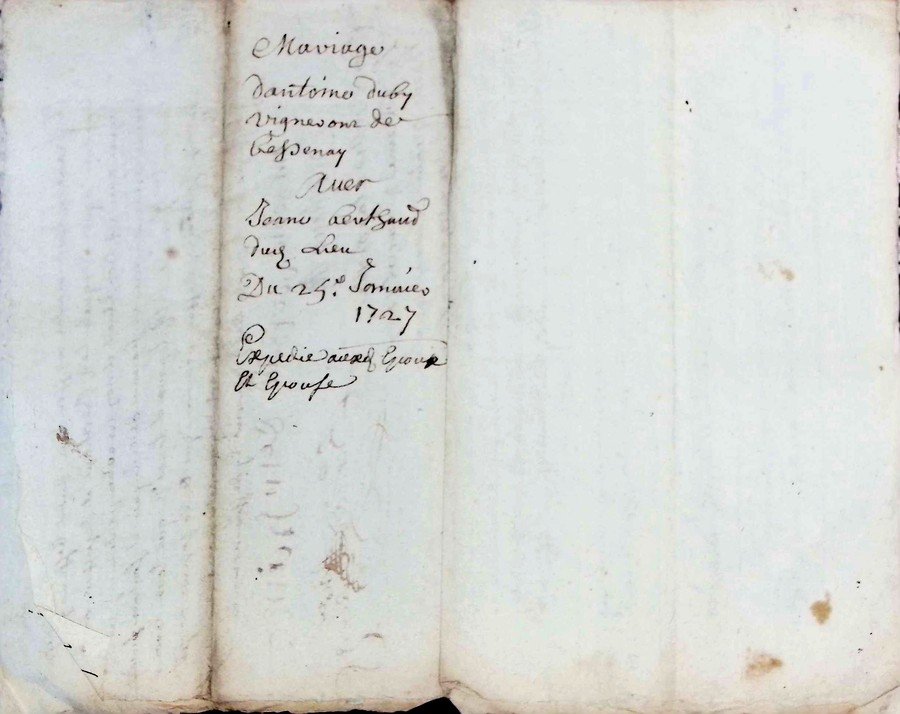 Mariage
dantoine duby
vigneront de
bessenay
Avec
Jeane berthaud
dud Lieu
Du 25e. Janvier
1727
Expedie auxd Epoux
Et Epouse